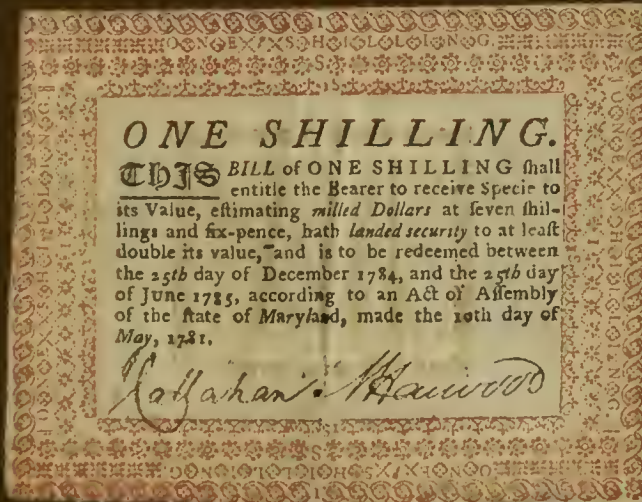 O N E S H I L L I N G
S
ONE SHILLING.
THIS BILL of ONE SHILLING ſhall
entitle the Bearer to receive Specie to
its Value, eſtimating milled Dollars at ſeven ſhil-
lings and ſix-pence, hath landed security to at leaſt
double its value, and is to be redeemed between
the 25th day of December 1784, and the 25th day
of June 1785, according to an Act of Aſſembly
of the ſtate of Maryland, made the 10th day of
May, 1781.
J Callahan. N Harwood
S
O N E S H I L L I N G